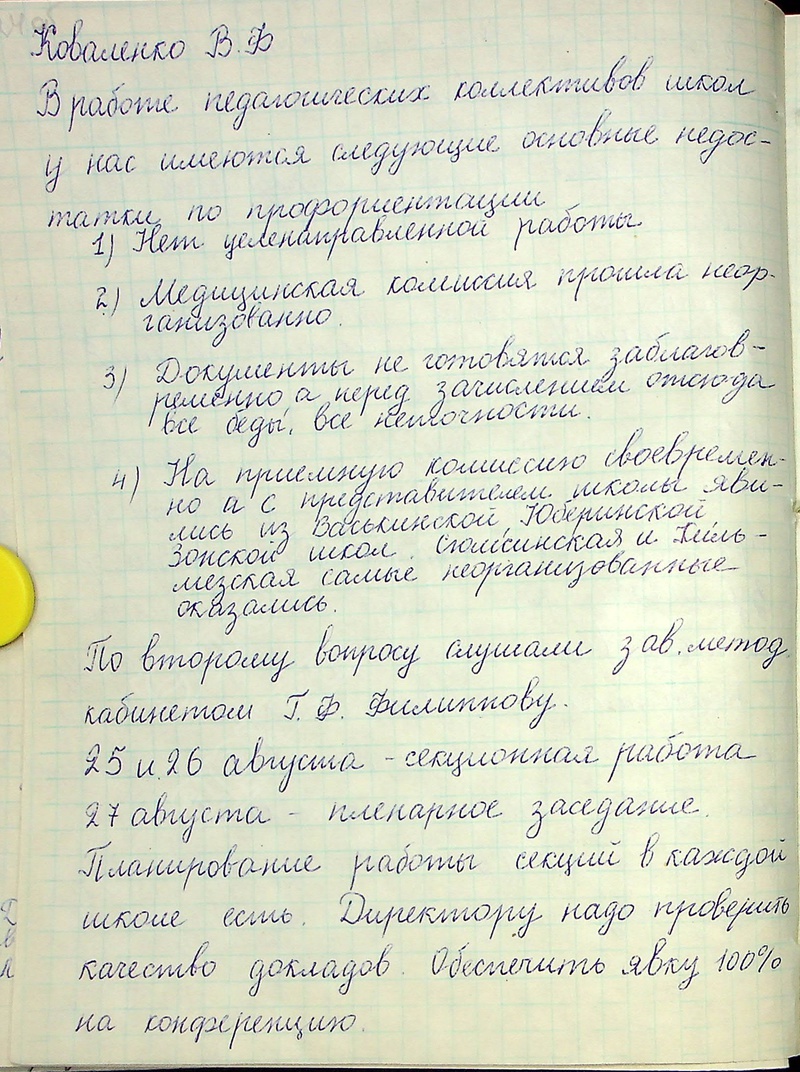 Коваленко В.Ф
В работе педагогических коллективов школ
у нас имеются следующие основные недос-
татки по профориентации
1) Нет целенаправленной работы
2) Медицинская комиссия прошла неор-
ганизованно.
3) Документы не готовятся заблагов-
ременно а перед зачислением отсюда
все беды, все неточности.
4) На приемную комиссию своевремен-
но а с представителем школы яви-
лись из Васькинской, Юберинской
Зонской школ. Сюмсинская и Киль-
мезская самые неорганизованные
оказались.
По второму вопросу слушали зав. метод
кабинетом Г. Ф. Филиппову.
25 и 26 августа - секционная работа
27 августа - пленарное заседание.
Планирование работы секций в каждой
школе есть. Директору надо проверить
качество докладов. Обеспечить явку 100%
на конференцию.